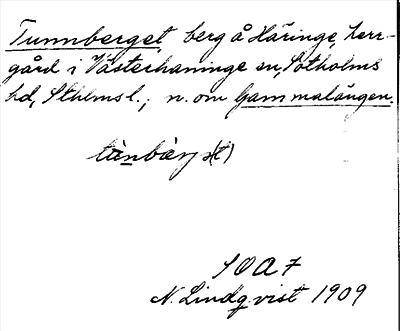 Tunnberget, berg å Häringe, herr-
gård i Västerhaninge sn, Sotholms
hd, Sthlms l.; n. om Gammalängen.
SOA 7
N. Lindqvist 1909